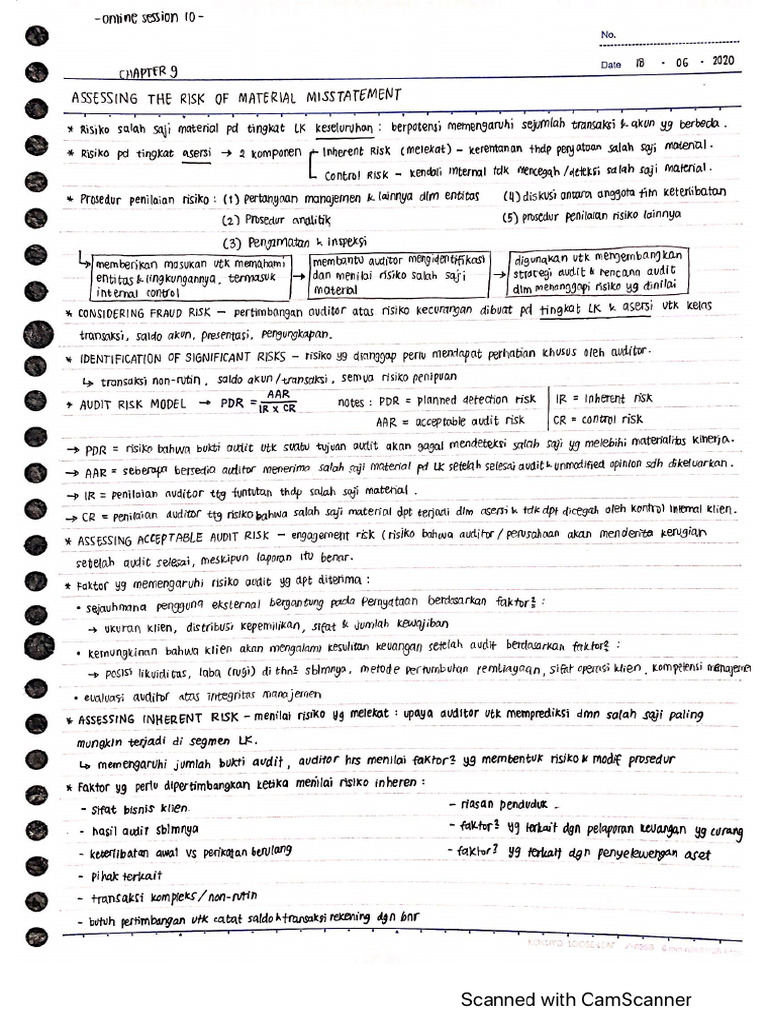 -online session 10-
No.
Date 18 - 06 - 2020
CHAPTER 9
ASSESSING THE RISK OF MATERIAL MISSTATEMENT
* Risiko salah saji material pd tingkat LK keseluruhan : berpotensi memengaruhi sejumlah transaksi & akun yg berbeda.
* Risiko pd tingkat asersi → 2 komponen Inherent Risk (melekat) - kerentanan thdp penyataan salah saji material.
Control Risk - kendali internal tdk mencegah/deteksi salah saji material.
* Prosedur penilaian risiko : (1) pertanyaan manajemen & lainnya dlm entitas (4) diskusi antara anggota tim keterlibatan
(2) Prosedur analitik (5) prosedur penilaian risiko lainnya
(3) Pengamatan & Inspeksi
↳ memberikan masukan utk memahami → membantu auditor mengidentifikasi → digunakan utk mengembangkan
entitas & lingkungannya, termasuk dan menilai risiko salah saji strategi audit & rencana audit
internal control material dlm menanggapi risiko yg dinilai
* CONSIDERING FRAUD RISK - pertimbangan auditor atas risiko kecurangan dibuat pd tingkat LK & asersi utk kelas
transaksi, saldo akun, presentasi, pengungkapan.
* IDENTIFICATION OF SIGNIFICANT RISKS - risiko yg dianggap perlu mendapat perhatian khusus oleh auditor.
↳ transaksi non-rutin, saldo akun/transaksi, semua risiko penipuan
* AUDIT RISK MODEL → PDR = AAR / IR x CR notes : PDR = planned detection risk | IR = inherent risk
AAR = acceptable audit risk | CR = control risk
→ PDR = risiko bahwa bukti audit utk suatu tujuan audit akan gagal mendeteksi salah saji yg melebihi materialitas kinerja.
→ AAR = seberapa bersedia auditor menerima salah saji material pd LK setelah selesai audit & unmodified opinion sdh dikeluarkan.
→ IR = penilaian auditor ttg tuntutan thdp salah saji material.
→ CR = penilaian auditor ttg risiko bahwa salah saji material dpt terjadi dlm asersi & tdk dpt dicegah oleh kontrol internal klien.
* ASSESSING ACCEPTABLE AUDIT RISK - engagement risk (risiko bahwa auditor / perusahaan akan menderita kerugian
setelah audit selesai, meskipun laporan itu benar.
* Faktor yg memengaruhi risiko audit yg dpt diterima :
• sejauhmana pengguna eksternal bergantung pada Pernyataan berdasarkan faktor² :
→ ukuran klien, distribusi kepemilikan, sifat & jumlah kewajiban
• kemungkinan bahwa klien akan mengalami kesulitan keuangan setelah audit berdasarkan faktor² :
→ posisi likuiditas, laba (rugi) di thn² sblmnya, metode pertumbuhan pembiayaan, sifat operasi klien, kompetensi manajemen
• evaluasi auditor atas integritas manajemen
* ASSESSING INHERENT RISK - menilai risiko yg melekat : upaya auditor utk memprediksi dmn salah saji paling
mungkin terjadi di segmen LK.
↳ memengaruhi jumlah bukti audit, auditor hrs menilai faktor² yg membentuk risiko & modif prosedur
* Faktor yg perlu dipertimbangkan ketika menilai risiko inheren :
- sifat bisnis klien. - riasan penduduk.
- hasil audit sblmnya - faktor² yg terkait dgn pelaporan keuangan yg curang
- keterlibatan awal vs perikatan berulang - faktor² yg terkait dgn penyelewengan aset
- pihak terkait
- transaksi kompleks / non-rutin
- butuh pertimbangan utk catat saldo & transaksi rekening dgn bnr
Scanned with CamScanner